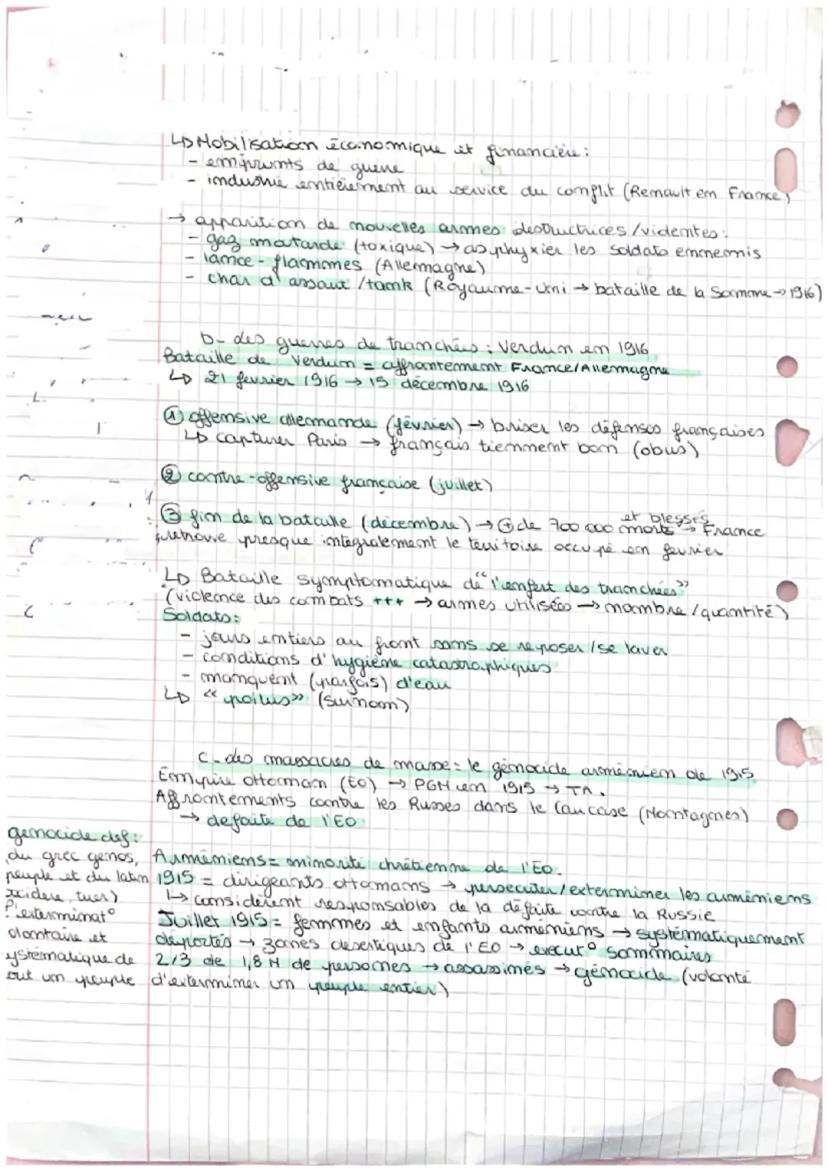 ↳ Mobilisation économique et financière :
- emprunts de guerre
- industrie entièrement au service du conflit (Renault en France)
→ apparition de nouvelles armes destructrices / violentes :
- gaz moutarde (toxique) → asphyxier les soldats ennemis
- lance-flammes (Allemagne)
- char d'assaut / tank (Royaume-Uni → bataille de la Somme → 1916)
b- des guerres de tranchées : Verdun en 1916
Bataille de Verdun = affrontement France/Allemagne
↳ 21 février 1916 → 15 décembre 1916
① offensive allemande (février) → briser les défenses françaises
↳ capturer Paris → français tiennent bon (obus)
② contre-offensive française (juillet)
③ fin de la bataille (décembre) → ⊕ de 700 000 morts et blessés → France
retrouve presque intégralement le territoire occupé en février
↳ Bataille symptomatique de "l'enfert des tranchées"
(violence des combats +++ → armes utilisées → nombre / quantité)
Soldats :
- jours entiers au front sans se reposer / se laver
- conditions d'hygiène catastrophiques
- manquent (parfois) d'eau
↳ "poilus" (surnom)
c- des massacres de masse : le génocide arménien de 1915
Empire Ottoman (EO) → PGM en 1915 → TA.
Affrontements contre les Russes dans le Caucase (Montagnes)
→ défaite de l'EO
génocide def :
du grec genos,
peuple et du latin
occidere, tuer)
l'exterminat°
olontaire et
ystématique de
out un peuple
Arméniens = minorité chrétienne de l'EO.
1915 = dirigeants ottomans → persecuter / exterminer les arméniens
↳ considèrent responsables de la défaite contre la Russie
Juillet 1915 = femmes et enfants arméniens → systématiquement
déportés → zones désertiques de l'EO → execut° sommaires
2/3 de 1,8 M de personnes → assassinés → génocide (volonté
d'exterminer un peuple entier)